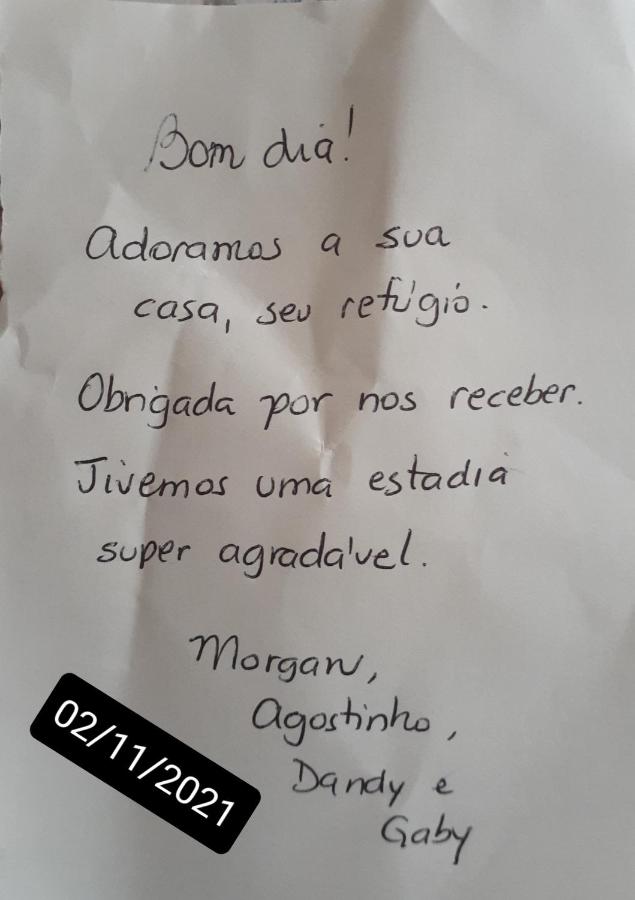 Bom dia!
Adoramos a sua
casa, seu refúgio.
Obrigada por nos receber.
Tivemos uma estadia
super agradável.
Morgan,
Agostinho,
Dandy e
Gaby
02/11/2021